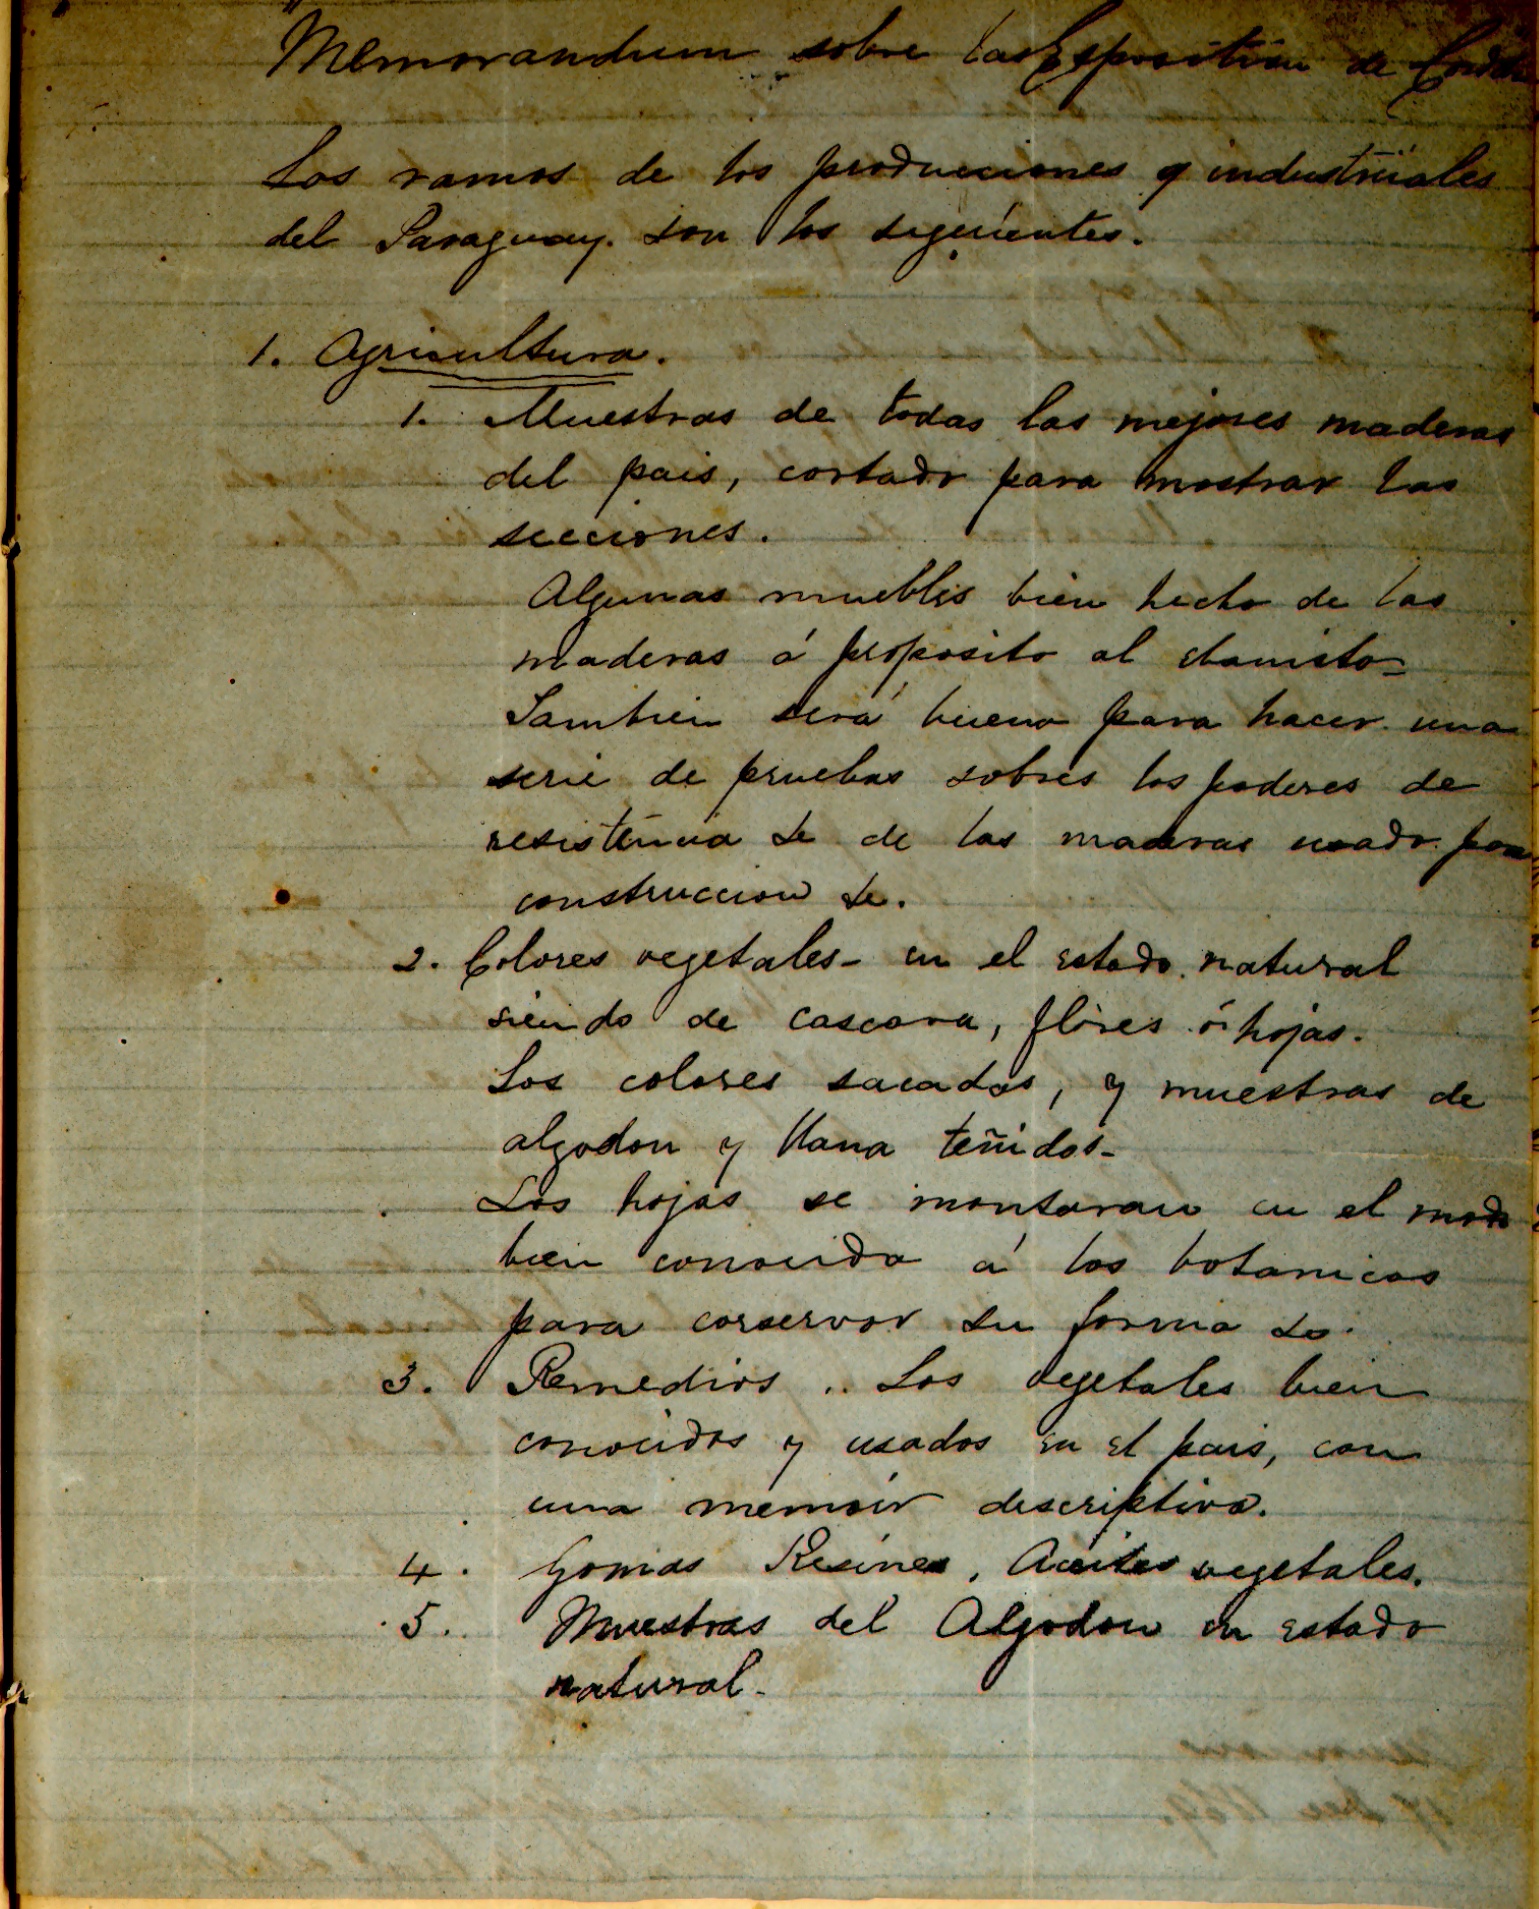 Memorandum sobre las Esposition de
Los ramos de los producciones y industriales
del Paraguay. son los siguientes.
1. Agricultura.
1. Muestras de todas las mejores maderas
del pais, cortado para mostrar las
secciones.
Algunas muebles bien hecho de las
maderas á proposito al
Tambien será bueno para hacer una
serie de pruebas sobres los poderes de
resistencia &c de las maderas usado para
construccion &c.
2. Colores vegetales - en el estado natural
siendo de cascara, flores ó hojas.
Los colores sacados, y muestras de
algodon y llana teñidos-
Las hojas se montaran en el modo
bien conocido á los botanicos
para conservar su forma &c.
3. Remedios .. Los vegetales bien
conocidos y usados en el pais, con
una memoir descriptiva.
4. Gomas Resines, Aceites vegetales.
5. Muestras del Algodon en estado
natural.